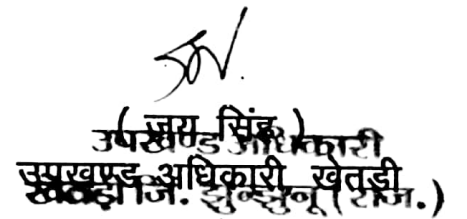 ( जय सिंह )
उपखण्ड अधिकारी
उपखण्ड अधिकारी खेतड़ी
खेतड़ी जि. झुन्झुनू (राज.)